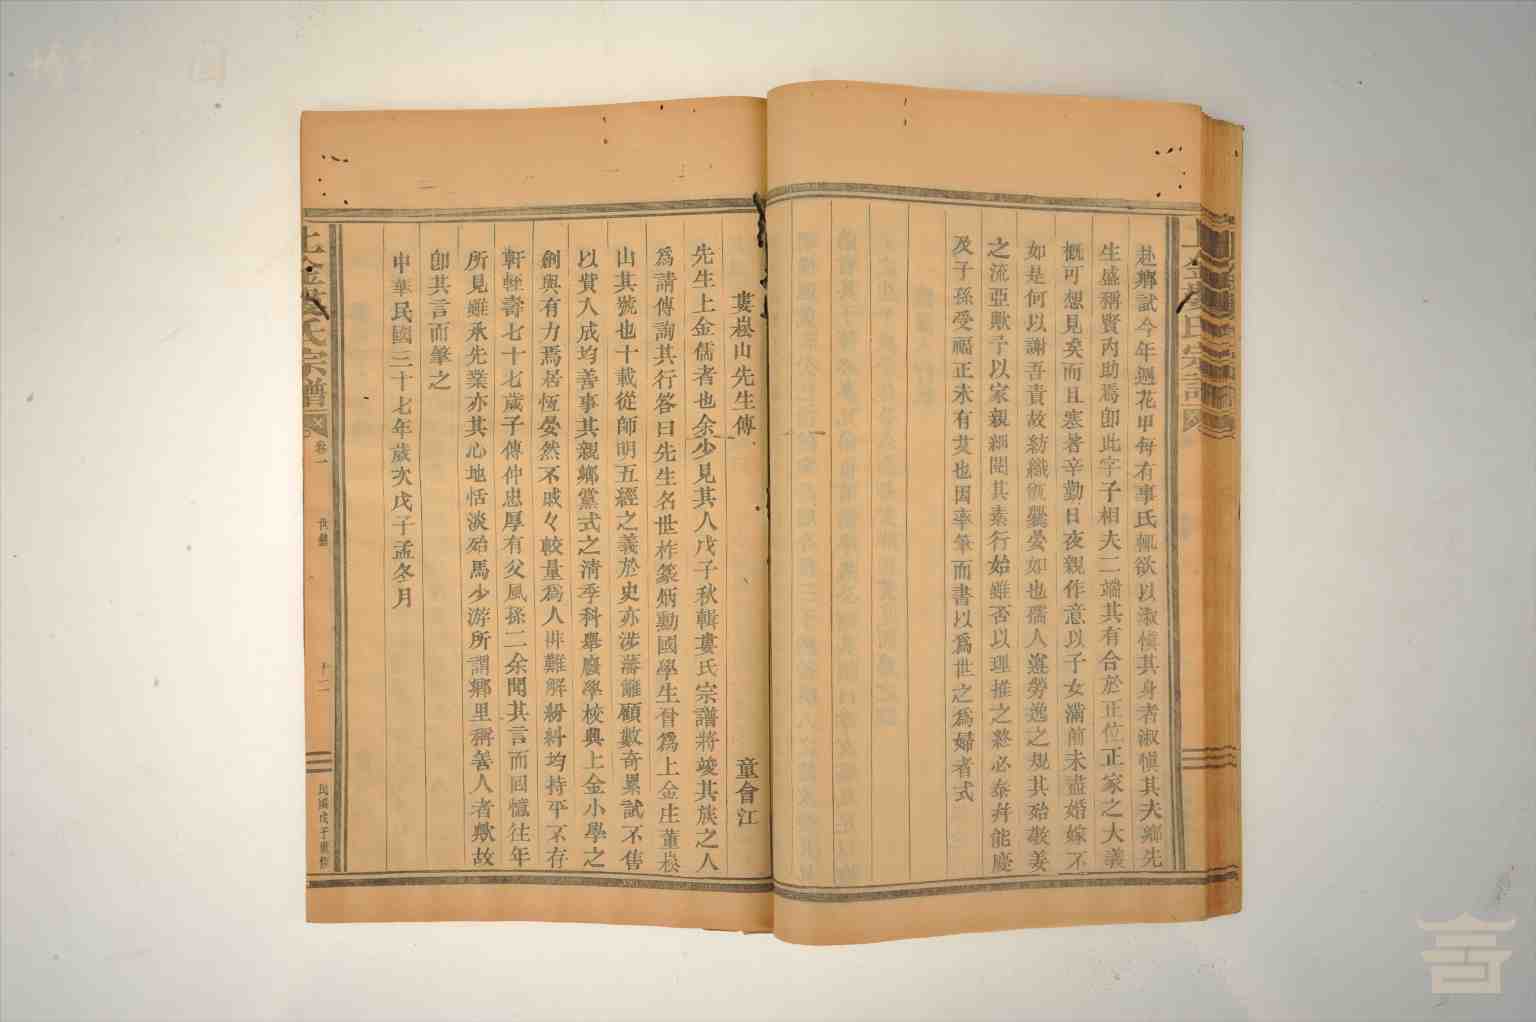 赴鄉試今年週花甲每有事氏輒欲以淑慎其身者淑慎其夫鄉先
生盛稱賢內助焉卽此字子相夫二端其有合於正位正家之大義
概可想見矣而且恭著辛勤日夜親作意以子女滿前未盡婚嫁不
如是何以謝吾責故紡織甑爨晏如也孺人遂勞逸之規其殆敬姜
之流亞歟予以家親稔聞其素行始雖否以理推之終必泰幷能慶
及子孫受福正未有艾也因率筆而書以爲世之爲婦者式
婁崧山先生傳
童會江
先生上金儒者也余少見其人戊子秋輯婁氏宗譜將竣其族之人
爲請傳詢其行答曰先生名世柞篆炳勳國學生晉爲上金庄董崧
山其號也十載從師明五經之義於史亦涉藩籬顧數奇累試不售
以貲入成均善事其親鄉黨式之清季科舉廢學校興上金小學之
創與有力焉居恆晏然不戚々較量爲人排難解紛糾均持平不存
軒輊壽七十七歲子傳仲忠厚有父風孫二余聞其言而回憶往年
所見雖承先業亦其心地恬淡殆馬少游所謂鄉里稱善人者歟故
卽其言而筆之
中華民國三十七年歲次戊子孟冬月
上金婁氏宗譜
卷一
十二
民國戊子重修